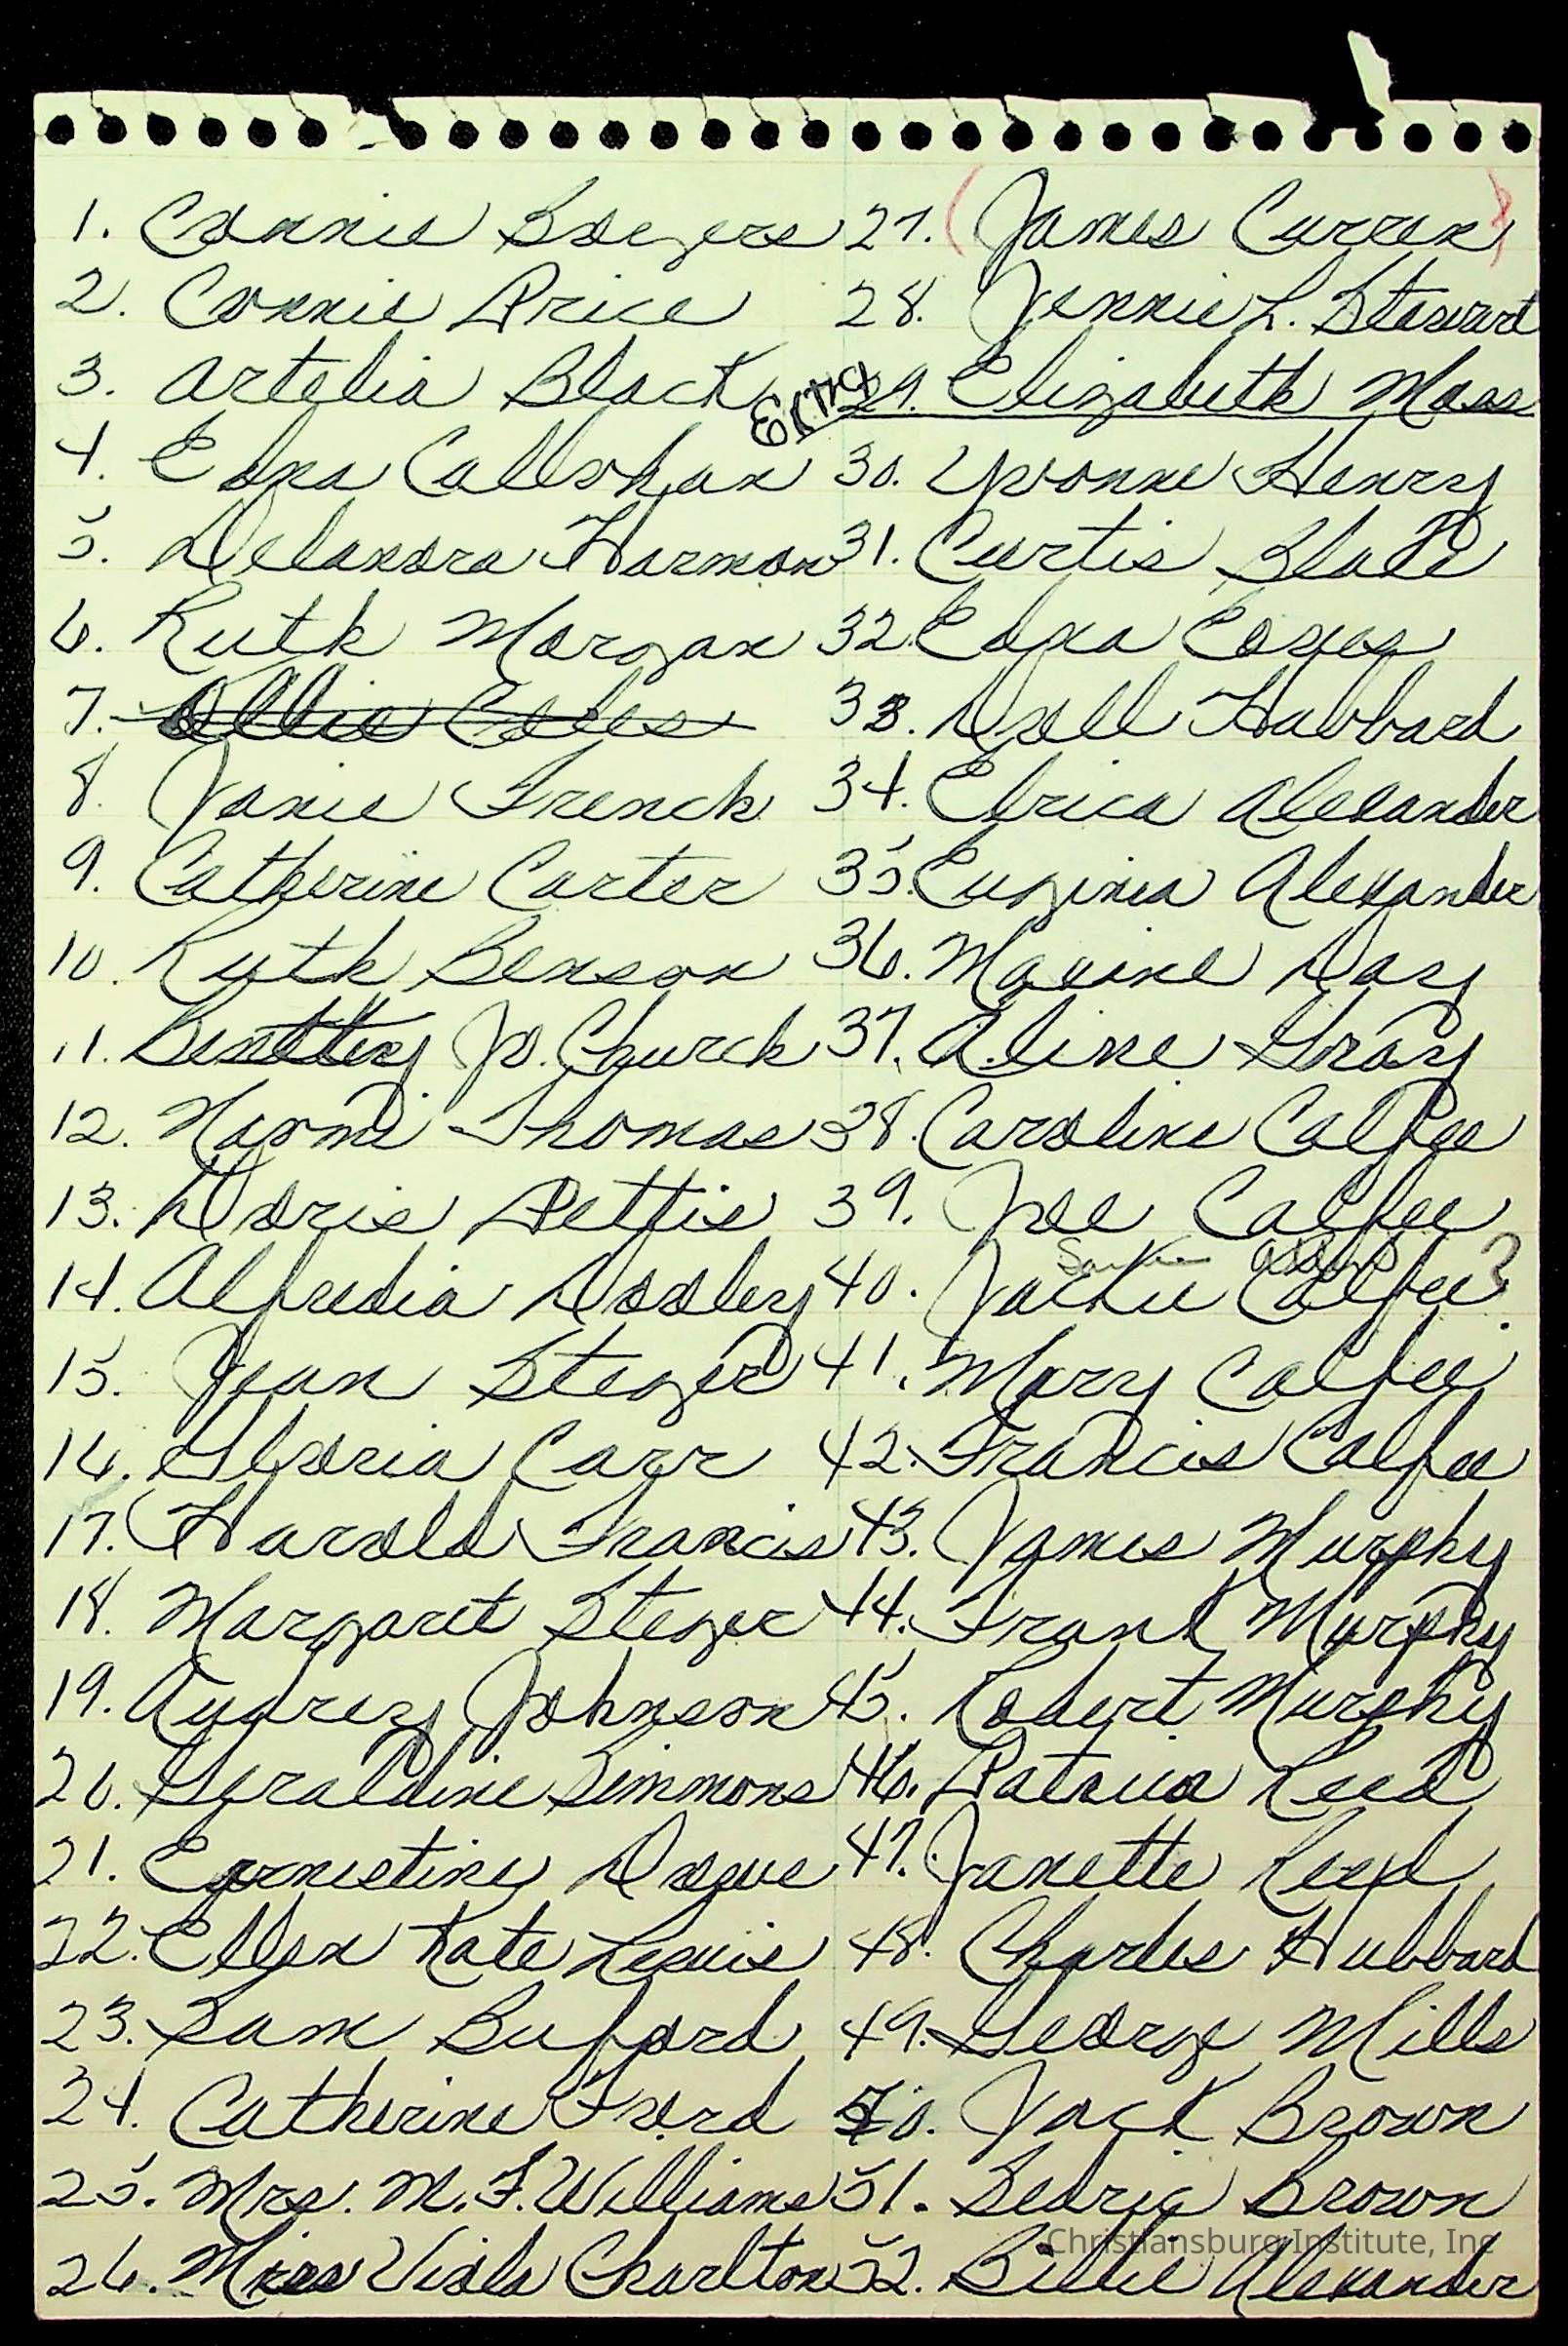 1. Connie Boezers
2. Connie Price
3. Artelia Black
4. Edna Callohan
5. Delandra Harmon
6. Ruth Morgan
7. Ollie Coles
8. Janie French
9. Catherine Carter
10. Ruth Benson
11. Jo. Church
12. Naomi Thomas
13. Doris Pettis
14. Alfredia Dooley
15. Jean Steger
16. Gloria Carr
17. Harold Francis
18. Margaret Steger
19. Audrey Johnson
20. Geraldine Simmons
21. Ernestine Dogue
22. Ellen Kate Lewis
23. Sam Buford
24. Catherine Ford
25. Mrs. M. F. Williams
26. Miss Viola Charlton
27. (James Curren)
28. Jennie L. Stewart
29. Elizabeth Moss
30. Yvonne Henry
31. Curtis Blake
32. Edna Eaves
33. Doll Hubbard
34. Elrica Alexander
35. Euginia Alexander
36. Maxine Day
37. Aline Gray
38. Caroline Calfee
39. Joe Calfee
40. Jackie Calfee?
41. Mary Calfee
42. Francis Calfee
43. James Murphy
44. Frank Murphy
45. Robert Murphy
46. Patricia Reed
47. Janette Reed
48. Charles Hubbard
49. George Mills
50. Jack Brown
51. Sedric Brown
52. Billie Alexander
Christiansburg Institute, Inc